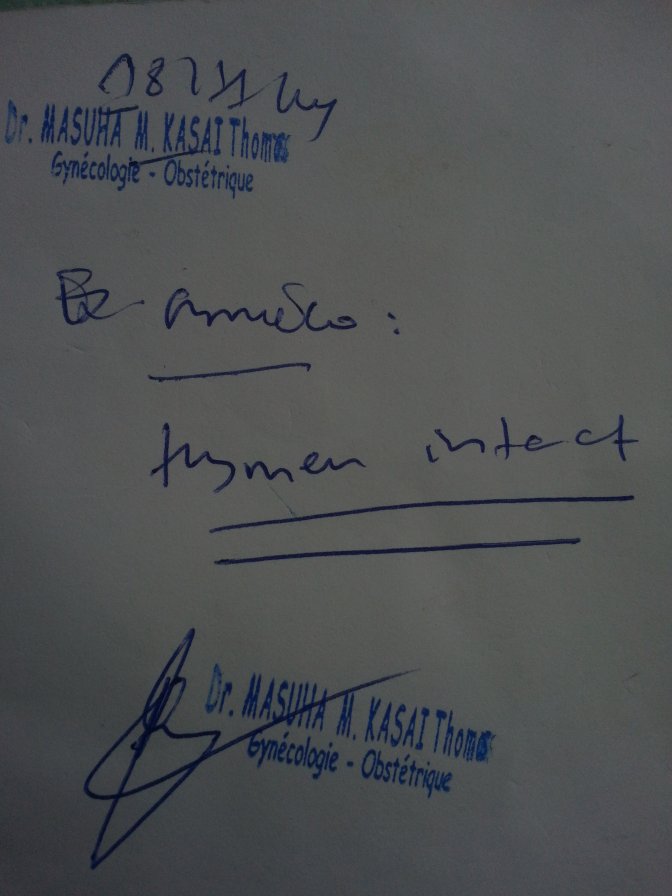 Dr. MASUHA M. KASAI Thomas
Gynécologie - Obstétrique
Ex gynéco :
Hymen intact
Dr. MASUHA M. KASAI Thomas
Gynécologie - Obstétrique